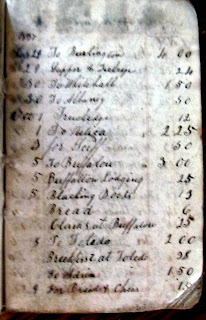 To Burlington 4 00
Supper & 24
30 To Whitehall 1 50
30 To Albany 50
Oct 1 12
1 To Utica 2 25
3 for 50
5 To Buffalow 3 00
5 Buffalow Lodging 25
5 Blacking Boots 13
Bread 6
at Buffalow 25
5 To Toledo 2 00
Breckfist at Toledo 38
To Adrian 1 50
9 for Bread & Chees